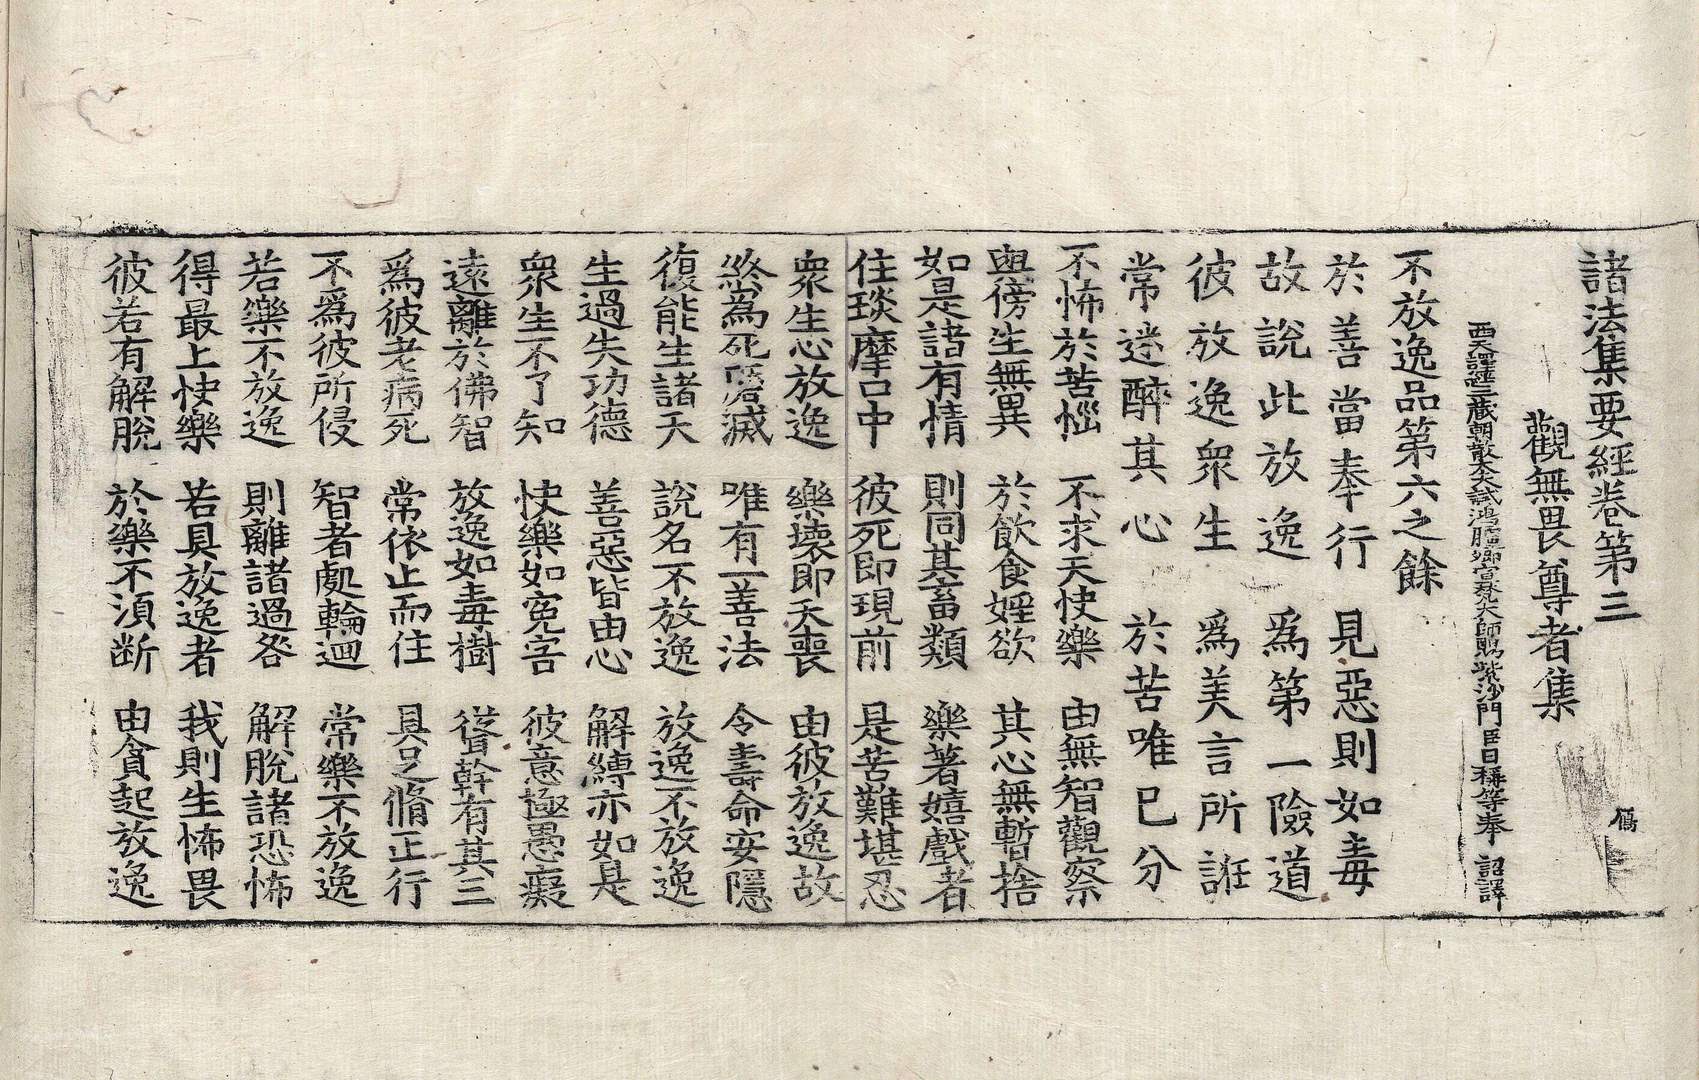 諸法集要經卷第三
鴈
觀無畏尊者集
西天譯經三藏朝散大夫試鴻臚卿宣梵大師賜紫沙門臣日稱等奉　詔譯
不放逸品第六之餘
於善當奉行　見惡則如毒
故說此放逸　爲第一險道
彼放逸衆生　爲美言所誑
常迷醉其心　於苦唯已分
不怖於苦惱　不求天快樂　由無智觀察
與傍生無異　於飲食婬欲　其心無暫捨
如是諸有情　則同其畜類　樂著嬉戲者
住琰摩口中　彼死即現前　是苦難堪忍
衆生心放逸　樂壞即夭喪　由彼放逸故
終為死磨滅　唯有一善法　令壽命安隱
復能生諸天　說名不放逸　放逸不放逸
生過失功德　善惡皆由心　解縛亦如是
衆生不了知　快樂如寃害　彼意極愚癡
遠離於佛智　放逸如毒樹　從幹有其三
爲彼老病死　常依止而住　具足脩正行
不爲彼所侵　智者處輪迴　常樂不放逸
若樂不放逸　則離諸過咎　解脫諸恐怖
得最上快樂　若具放逸者　我則生怖畏
彼若有解脫　於樂不湏斷　由貪起放逸